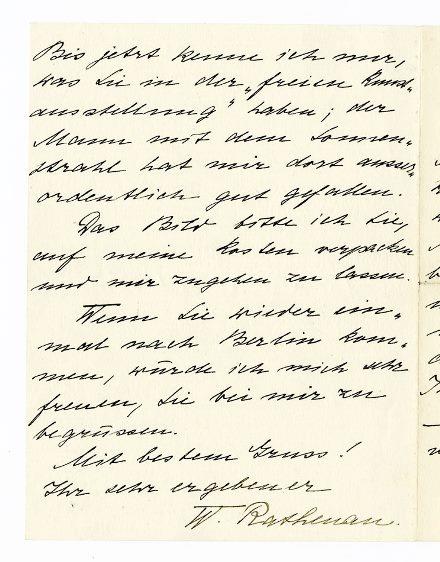 Bis jetzt kenne ich nur,
was Sie in der „freien Kunst-
ausstellung" haben; der
Mann mit dem Sonnen-
strahl hat mir dort ausser-
ordentlich gut gefallen.
Das Bild bitte ich Sie,
auf meine Kosten verpacken
und mir zugehen zu lassen.
Wenn Sie wieder ein-
mal nach Berlin kom-
men, würde ich mich sehr
freuen, Sie bei mir zu
begrüssen.
Mit bestem Gruss!
Ihr sehr ergebener
W. Rathenau.